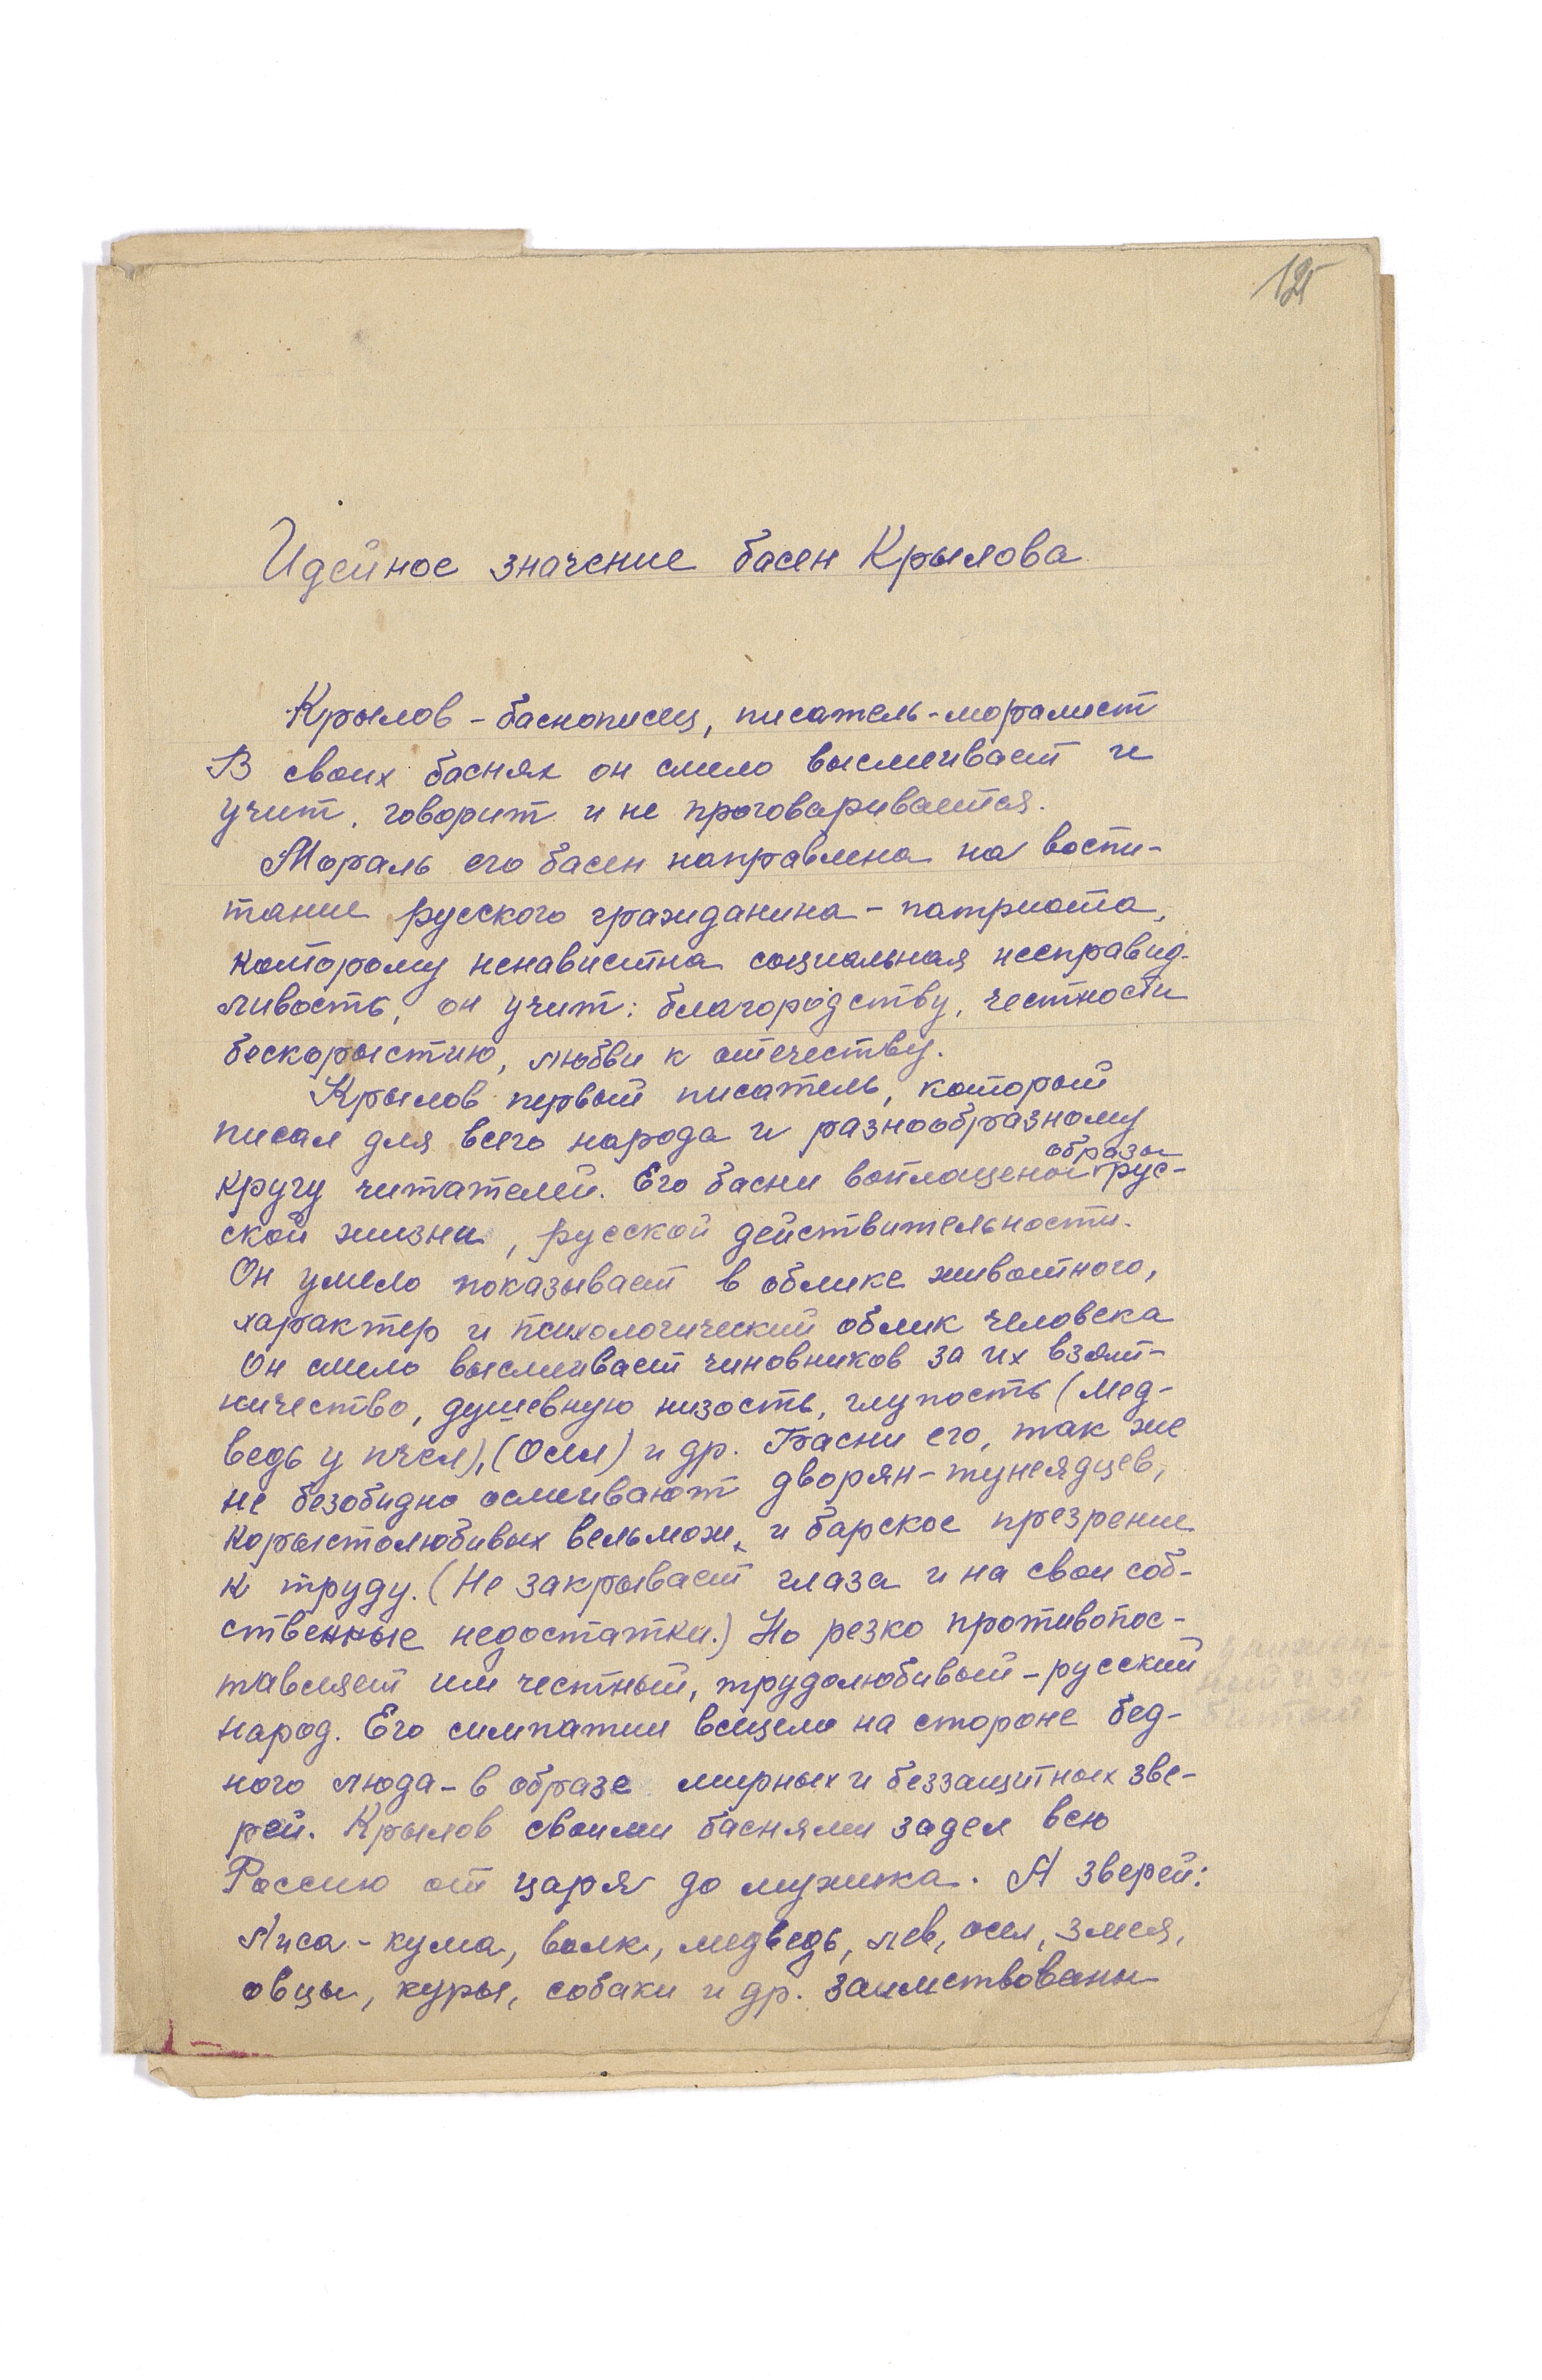 Идейное значение басен Крылова
Крылов - баснописец, писатель-моралист
В своих баснях он смело высмеивает и
учит, говорит и не проговаривается.
Мораль его басен направлена на воспи-
тание русского гражданина - патриота,
которому ненавистна социальная несправед-
ливость, он учит: благородству, честности
бескорыстию, любви к отечеству.
Крылов первый писатель, который
писал для всего народа и разнообразному
образы
кругу читателей. Его басни воплощены рус-
ской жизни, русской действительности.
Он умело показывает в облике животного,
характер и психологический облик человека
Он смело высмеивает чиновников за их взят-
ничество, душевную низость, глупость (Мед-
ведь у пчел), (Осел) и др. Басни его, так же
не безобидно осмеивают дворян-тунеядцев,
корыстолюбивых вельмож, и барское презрение
к труду. (Не закрывает глаза и на свои соб-
ственные недостатки.) Но резко противопос-
тавляет им честный, трудолюбивый - русский
народ. Его симпатии всецело на стороне бед-
ного люда - в образе мирных и беззащитных зве-
рей. Крылов своими баснями задел всю
Россию от царя до мужика. А зверей:
Лиса - кума, волк, медведь, лев, осел, змея,
овцы, куры, собаки и др. заимствованы